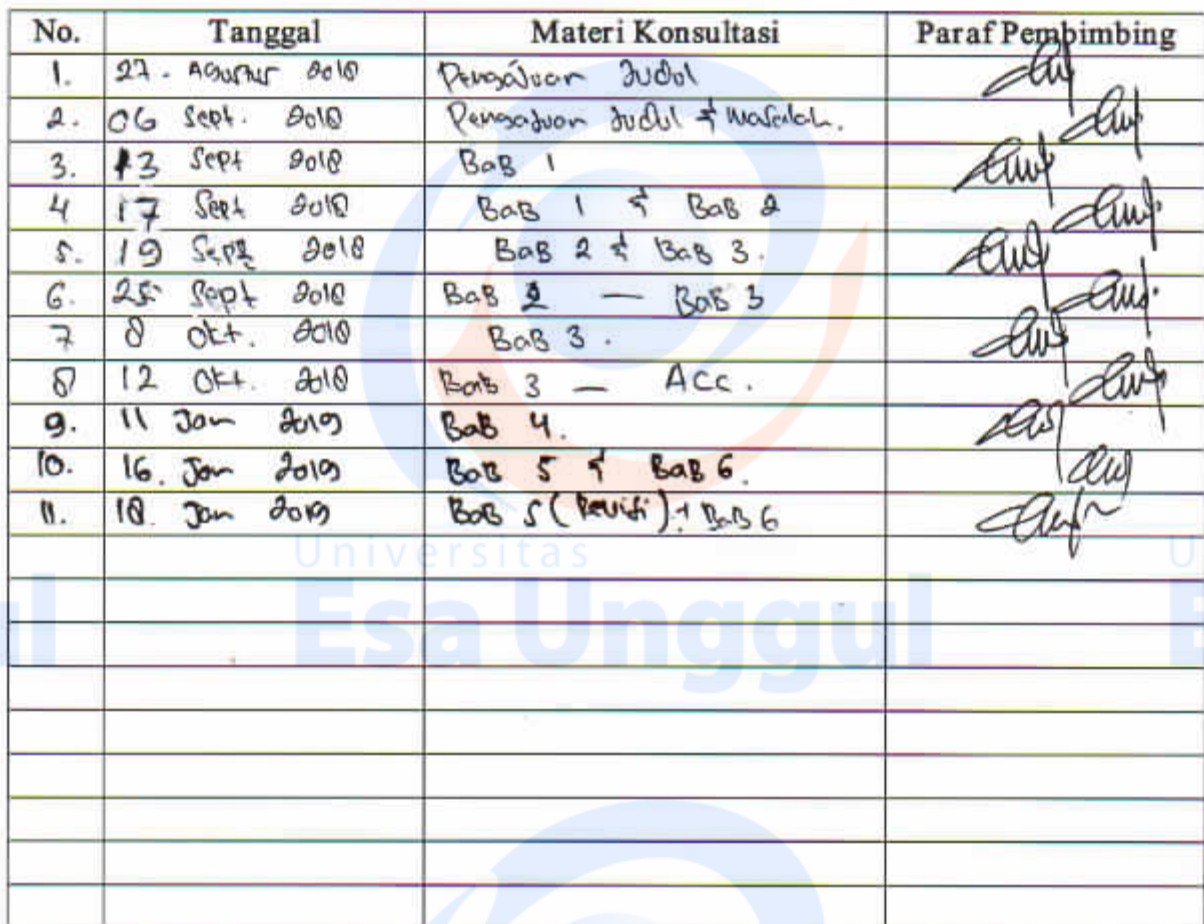 No. Tanggal Materi Konsultasi Paraf Pembimbing
1. 27. Agustus 2018 Pengajuan Judul
2. 06 Sept. 2018 Pengajuan Judul & Masalah.
3. 13 Sept 2018 BaB 1
4 17 Sept 2018 BaB 1 & BaB 2
5. 19 Sept 2018 BaB 2 & BaB 3.
6. 25 Sept 2018 BaB 2 — BaB 3
7 8 Okt. 2018 BaB 3.
8 12 Okt. 2018 BaB 3 — Acc.
9. 11 Jan 2019 BaB 4.
10. 16. Jan 2019 BaB 5 & BaB 6.
11. 18. Jan 2019 BaB 5 (Revisi) + BaB 6
Universitas
Esa Unggul